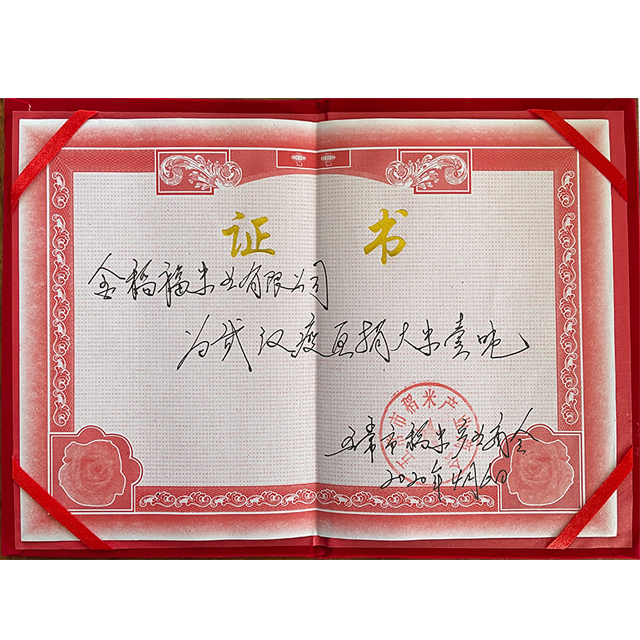 证书
金稻福米业有限公司
为武汉疫区捐大米壹吨
五常市稻米产业商会
2020年4月6日